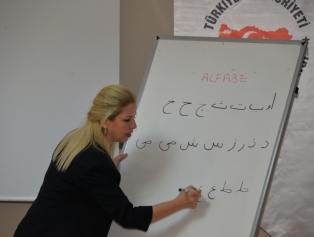 TÜRKİYE
ALFABE
ا ب ت ث ج ح خ
د ذ ر ز س ش ص ض
ط ظ ع